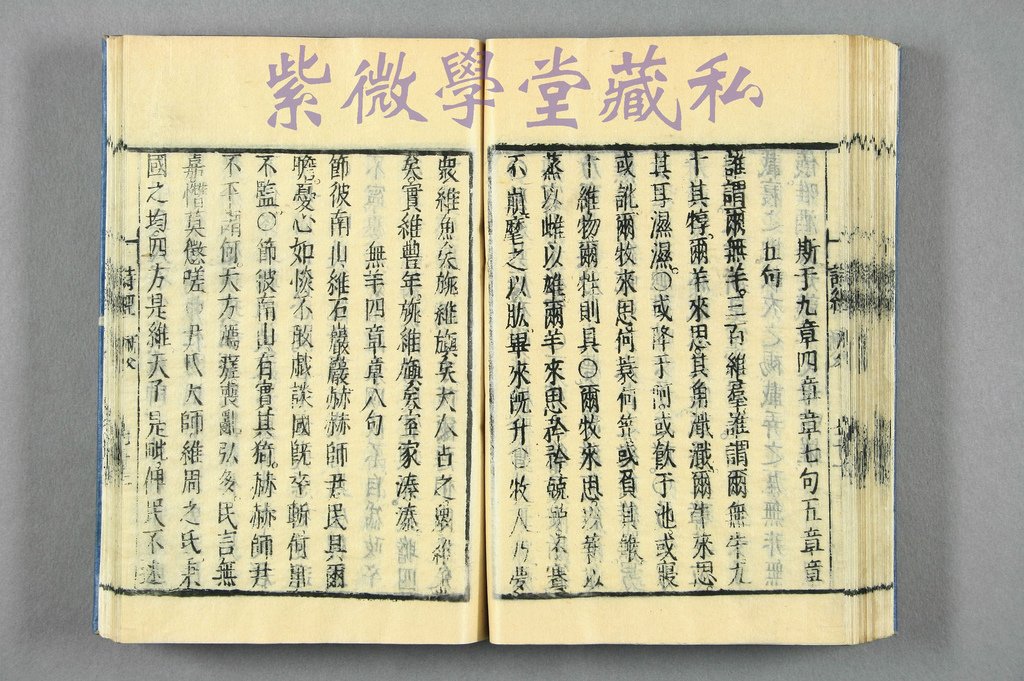 紫微學堂藏私
斯于九章四章章七句五章章
五句
誰謂爾無羊三百維羣誰謂爾無牛九
十其犉爾羊來思其角濈濈爾牛來思
其耳濕濕〇或降于阿或飲于池或寢
或訛爾牧來思何蓑何笠或負其餱
十維物爾牲則具〇爾牧來思以薪以
蒸以雌以雄爾羊來思矜矜兢兢不騫
不崩麾之以肱畢來既升〇牧人乃夢
衆維魚矣旐維旟矣大人占之衆維魚
矣實維豐年旐維旟矣室家溱溱
無羊四章章八句
節彼南山維石巖巖赫赫師尹民具爾
瞻憂心如惔不敢戲談國既卒斬何用
不監〇節彼南山有實其猗赫赫師尹
不平謂何天方薦瘥喪亂弘多民言無
嘉憯莫懲嗟尹氏大師維周之氐秉
國之均四方是維天子是毗俾民不迷
詩經